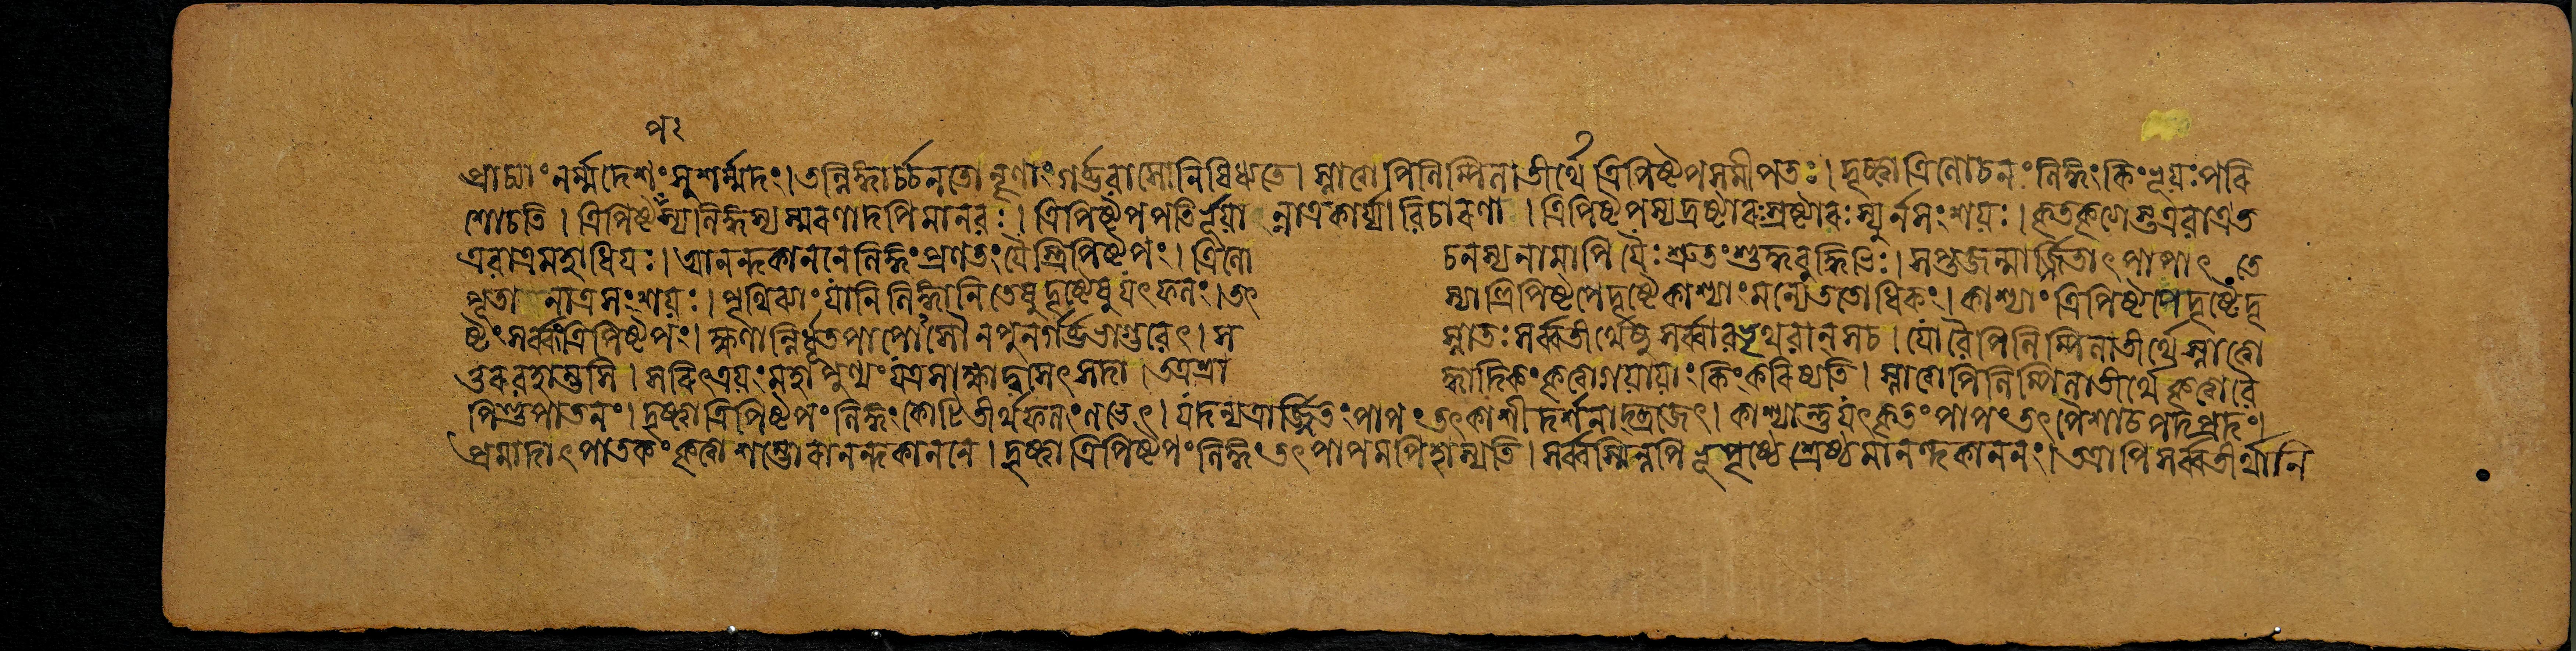 পঃ
প্রাচ্যাং নর্ম্মদেশং সুশর্ম্মদং। তল্লিঙ্গার্চ্চনতো নৄণাং গর্ভবাসো নিষিধ্যতে। স্নাত্বা পিলিপ্পিলাতীর্থে ত্রিপিষ্টপসমীপতঃ। দৃষ্ট্বা ত্রিলোচনং লিঙ্গং কিং ভূয়ঃ পরি
শোচতি। ত্রিপিষ্টপস্য লিঙ্গস্য স্মরণাদপি মানবঃ। ত্রিপিষ্টপপতির্ভূয়া ন্নাত্র কার্য্যা বিচারণা। ত্রিপিষ্টপস্য দ্রষ্টারঃ স্রষ্টারঃ স্যুর্নসংশয়ঃ। কৃতকৃত্যাস্তু এবাত্র ত
এবাত্র মহাধিয়ঃ। আনন্দকাননে লিঙ্গং প্রণতং যৈস্ত্রিপিষ্টপং। ত্রিলো চনস্য নামাপি যৈঃ শ্রুতং শুদ্ধবুদ্ধিভিঃ। সপ্তজন্মার্জ্জিতাৎ পাপাৎ তে
পূতা নাত্র সংশয়ঃ। পৃথিব্যাং যানি লিঙ্গানি তেষু দৃষ্টেষু যৎ ফলং। তৎ স্যাত্ত্রিপিষ্টপে দৃষ্টে কাশ্যাং মন্যে ততোধিকং। কাশ্যাং ত্রিপিষ্টপে দৃষ্টে দৃ
ষ্টং সর্ব্বং ত্রিপিষ্টপং। ক্ষণান্নির্ধূতপাপোসৌ ন পুনর্গর্ভভাগ্ভবেৎ। স স্নাতঃ সর্ব্বতীর্থেষু সর্ব্বাবভৃথবান্ স চ। যো বৈ পিলিপ্পিলাতীর্থে স্নাত্বো
ত্তরবহাম্ভসি। সরিৎত্রয়ং মহাপুণ্যং যত্র সাক্ষাদ্বসেৎ সদা। তত্র শ্রা দ্ধাদিকং কৃত্বা গয়ায়াং কিং করিষ্যতি। স্নাত্বা পিলিপ্পিলাতীর্থে কৃত্বা বৈ
পিণ্ডপাতনং। দৃষ্ট্বা ত্রিপিষ্টপং লিঙ্গং কোটিতীর্থফলং লভেৎ। যদন্যত্রার্জ্জিতং পাপং তৎ কাশীদর্শনাদ্ব্রজেৎ। কাশ্যান্তু যৎ কৃতং পাপং তৎ পৈশাচপদপ্রদং।
প্রমাদাৎ পাতকং কৃত্বা শম্ভোরানন্দকাননে। দৃষ্ট্বা ত্রিপিষ্টপং লিঙ্গং তৎ পাপমপি হাস্যতি। সর্ব্বস্মিন্নপি ভূপৃষ্ঠে শ্রেষ্ঠমানন্দকাননং। তত্রাপি সর্ব্বতীর্থানি